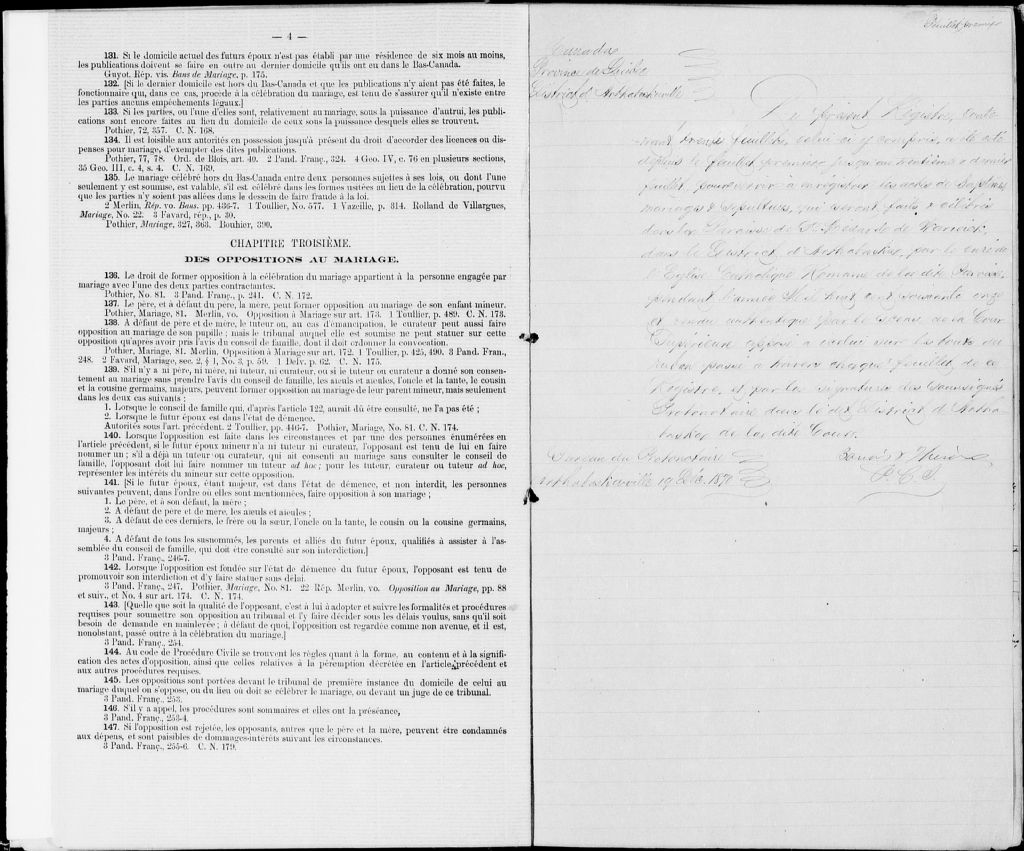 — 4 —
131. Si le domicile actuel des futurs époux n'est pas établi par une résidence de six mois au moins,
les publications doivent se faire en outre au dernier domicile qu'ils ont eu dans le Bas-Canada.
Guyot. Rép. vis. Bans de Mariage, p. 175.
132. [Si le dernier domicile est hors du Bas-Canada et que les publications n'y aient pas été faites, le
fonctionnaire qui, dans ce cas, procède à la célébration du mariage, est tenu de s'assurer qu'il n'existe entre
les parties aucuns empêchements légaux.]
133. Si les parties, ou l'une d'elles, sont, relativement au mariage, sous la puissance d'autrui, les publi-
cations sont encore faites au lieu du domicile de ceux sous la puissance desquels elles se trouvent.
Pothier, 72, 357. C. N. 168.
134. Il est loisible aux autorités en possession jusqu'à présent du droit d'accorder des licences ou dis-
penses pour mariage, d'exempter des dites publications.
Pothier, 77, 78. Ord. de Blois, art. 40. 2 Pand. Franç., 324. 4 Geo. IV, c. 76 en plusieurs sections,
35 Geo. III, c. 4, s. 4. C. N. 169.
135. Le mariage célébré hors du Bas-Canada entre deux personnes sujettes à ses lois, ou dont l'une
seulement y est soumise, est valable, s'il est célébré dans les formes usitées au lieu de la célébration, pourvu
que les parties n'y soient pas allées dans le dessein de faire fraude à la loi.
2 Merlin, Rép. vo. Bans. pp. 436-7. 1 Toullier, No. 577. 1 Vazeille, p. 314. Rolland de Villargues,
Mariage, No. 22. 3 Favard, rép., p. 30.
Pothier, Mariage, 327, 363. Bouhier, 390.
CHAPITRE TROISIÈME.
DES OPPOSITIONS AU MARIAGE.
136. Le droit de former opposition à la célébration du mariage appartient à la personne engagée par
mariage avec l'une des deux parties contractantes.
Pothier, No. 81. 3 Pand. Franç., p. 241. C. N. 172.
137. Le père, et à défaut du père, la mère, peut former opposition au mariage de son enfant mineur.
Pothier, Mariage, 81. Merlin, vo. Opposition à Mariage sur art. 173. 1 Toullier, p. 489. C. N. 173.
138. A défaut de père et de mère, le tuteur ou, au cas d'émancipation, le curateur peut aussi faire
opposition au mariage de son pupille ; mais le tribunal auquel elle est soumise ne peut statuer sur cette
opposition qu'après avoir pris l'avis du conseil de famille, dont il doit ordonner la convocation.
Pothier, Mariage, 81. Merlin, Opposition à Mariage sur art. 172. 1 Toullier, p. 425, 490. 3 Pand. Fran.,
248. 2 Favard, Mariage, sec. 2, § 1, No. 3, p. 59. 1 Delv. p. 62. C. N. 175.
139. S'il n'y a ni père, ni mère, ni tuteur, ni curateur, ou si le tuteur ou curateur a donné son consen-
tement au mariage sans prendre l'avis du conseil de famille, les aïeuls et aïeules, l'oncle et la tante, le cousin
et la cousine germains, majeurs, peuvent former opposition au mariage de leur parent mineur, mais seulement
dans les deux cas suivants :
1. Lorsque le conseil de famille qui, d'après l'article 122, aurait dû être consulté, ne l'a pas été ;
2. Lorsque le futur époux est dans l'état de démence.
Autorités sous l'art. précédent. 2 Toullier, pp. 446-7. Pothier, Mariage, No. 81. C. N. 174.
140. Lorsque l'opposition est faite dans les circonstances et par une des personnes énumérées en
l'article précédent, si le futur époux mineur n'a ni tuteur ni curateur, l'opposant est tenu de lui en faire
nommer un ; s'il a déjà un tuteur ou curateur, qui ait consenti au mariage sans consulter le conseil de
famille, l'opposant doit lui faire nommer un tuteur ad hoc ; pour les tuteur, curateur ou tuteur ad hoc,
représenter les intérêts du mineur sur cette opposition.
141. [Si le futur époux, étant majeur, est dans l'état de démence, et non interdit, les personnes
suivantes peuvent, dans l'ordre où elles sont mentionnées, faire opposition à son mariage ;
1. Le père, et à son défaut, la mère ;
2. A défaut de père et de mère, les aïeuls et aïeules ;
3. A défaut de ces derniers, le frère ou la sœur, l'oncle ou la tante, le cousin ou la cousine germains,
majeurs ;
4. A défaut de tous les susnommés, les parents et alliés du futur époux, qualifiés à assister à l'as-
semblée du conseil de famille, qui doit être consulté sur son interdiction.]
3 Pand. Franç., 246-7.
142. Lorsque l'opposition est fondée sur l'état de démence du futur époux, l'opposant est tenu de
promouvoir son interdiction et d'y faire statuer sans délai.
3 Pand. Franç., 247. Pothier, Mariage, No. 81. 22 Rép. Merlin, vo. Opposition au Mariage, pp. 88
et suiv., et No. 4 sur art. 174. C. N. 174.
143. [Quelle que soit la qualité de l'opposant, c'est à lui à adopter et suivre les formalités et procédures
requises pour soumettre son opposition au tribunal et l'y faire décider sous les délais voulus, sans qu'il soit
besoin de demande en mainlevée ; à défaut de quoi, l'opposition est regardée comme non avenue, et il est,
nonobstant, passé outre à la célébration du mariage.]
3 Pand. Franç., 254.
144. Au code de Procédure Civile se trouvent les règles quant à la forme, au contenu et à la signifi-
fication des actes d'opposition, ainsi que celles relatives à la péremption décrétée en l'article précédent et
aux autres procédures requises.
145. Les oppositions sont portées devant le tribunal de première instance du domicile de celui au
mariage duquel on s'oppose, ou du lieu où doit se célébrer le mariage, ou devant un juge de ce tribunal.
3 Pand. Franç., 253.
146. S'il y a appel, les procédures sont sommaires et elles ont la préséance,
3 Pand. Franç., 253-4.
147. Si l'opposition est rejetée, les opposants, autres que le père et la mère, peuvent être condamnés
aux dépens, et sont paisibles de dommages-intérêts suivant les circonstances.
3 Pand. Franç., 255-6. C. N. 179.
Feuillet premier
Canada
Province de Québec
District d'Arthabaska
Le présent Registre, conte-
nant trente feuillets, celui ci y compris, a été coté
depuis le feuillet premier jusqu'au trentième & dernier
feuillet, pour servir à enregistrer les actes de Baptêmes
mariages & sépultures, qui seront faits & célébrés
dans la Paroisse de St Médard de Warwick,
dans le District d'Arthabaska, par le curé de
l'Eglise Catholique Romaine de la dite Paroisse
pendant l'année Mil huit cent soixante onze
& rendu authentique par le sceau de la Cour
Supérieure apposé à celui sur les bouts du
ruban passé à travers chaque feuillet, de ce
Registre, et par les signatures des Soussignés
Protonotaire dans le dit District d'Artha-
baska de la dite Cour.
Bureau du Protonotaire
Arthabaskaville 19 Déc. 1870
P. C. S.